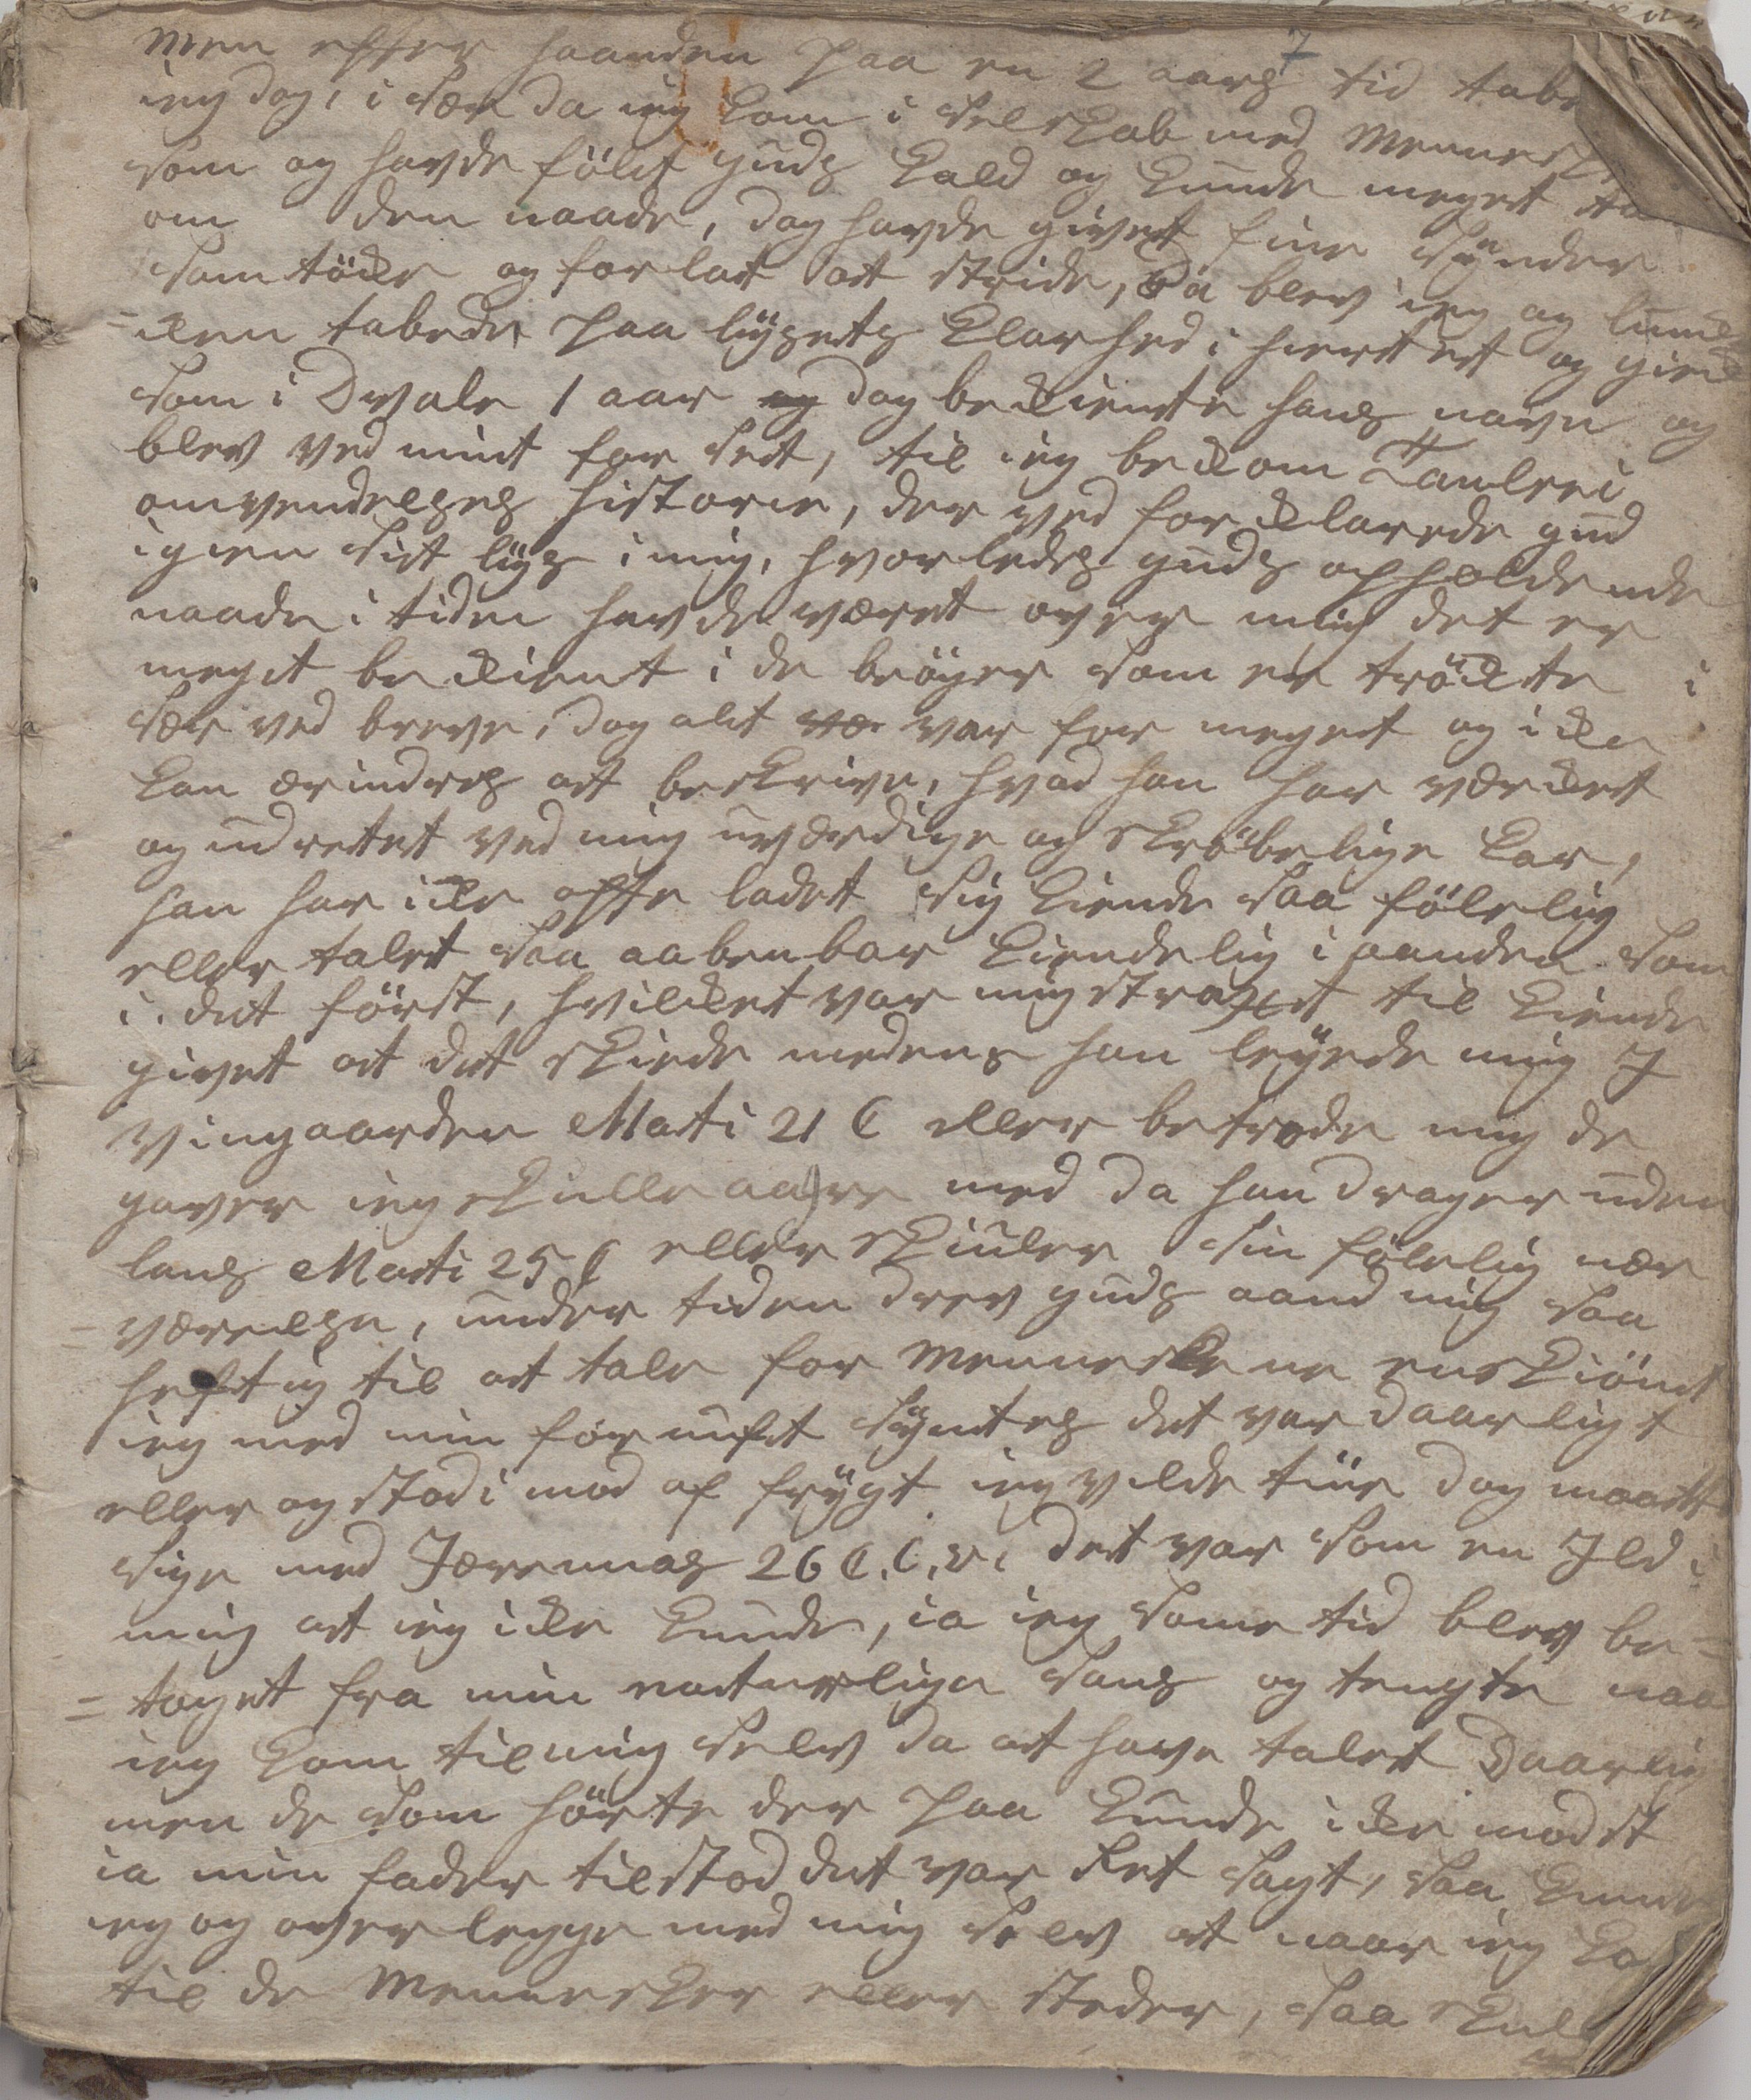 7
Men effter haanden paa en 2 aars tid tabe
ieg dog, i sær da ieg kom i Selskab med Mennesk
som og havde fölt guds kald og kunde meget ta
om den naade, dog havde givet sine Synder
samtöke og forlat at stride, da blev ieg og lunk
=ken tabede paa lysets klarhed i hiertet og giek
som i Dvale 1 aar og dog bekiente hans navn og
blev ved mint for set, til ieg bekom Taulerii
omvendelses historie, der ved forklarede gud
igien sit lys i mig, hvorledes guds opholdende
naade i tiden havde været over mig det er
meget bekient i de böger som er trökte i
sær ved breve, dog alt væ var for meget og ikke
kan erindres at beskrive, hvad han har værket
og udrettet ved mig uværdige og skröbelige kar,
han har ikke offte ladet sig kiende saa fölelig
eller talet saa aabenbar kiendelig i aanden som
i det först, hvilket var mig straxt til kiende
givet at det skiede medens han leyede mig I
Vingaarden Mati 21 C eller betrode mig de
gaver ieg skulle aagre med da han drager uden
lans Mati 25 C eller skiuler sin fölelig nær
=værelse, under tiden drev guds aand mig saa
heftig til at tale for Menneskene enskiönt
ieg med min fornuft syntes det var daarligt
eller og stod imod af frygt ieg vilde tiie dog maatte
sige med Jeremias 26 C. C. v. det var som en Ild i
mig at ieg ikke kunde, ia ieg some tid blev be=
=taget fra min naturlige sans og tengte naa
ieg kom til mig selv da at have talet Daarlig
men de som hörte der paa kunde ikke modst
ia min fader tilstod det var Ret sagt, saa kunde
ieg og overlegge med mig selv at naar ieg ko
til de Mennesker eller steder, saa skul